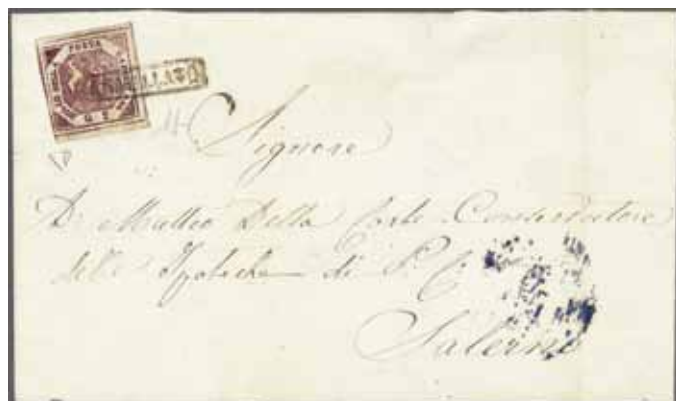 POSTA
G. 2
ANNULLATO
Signore
D. Matteo Della Corte Conservatore
delle Ipoteche di P. C.
Salerno